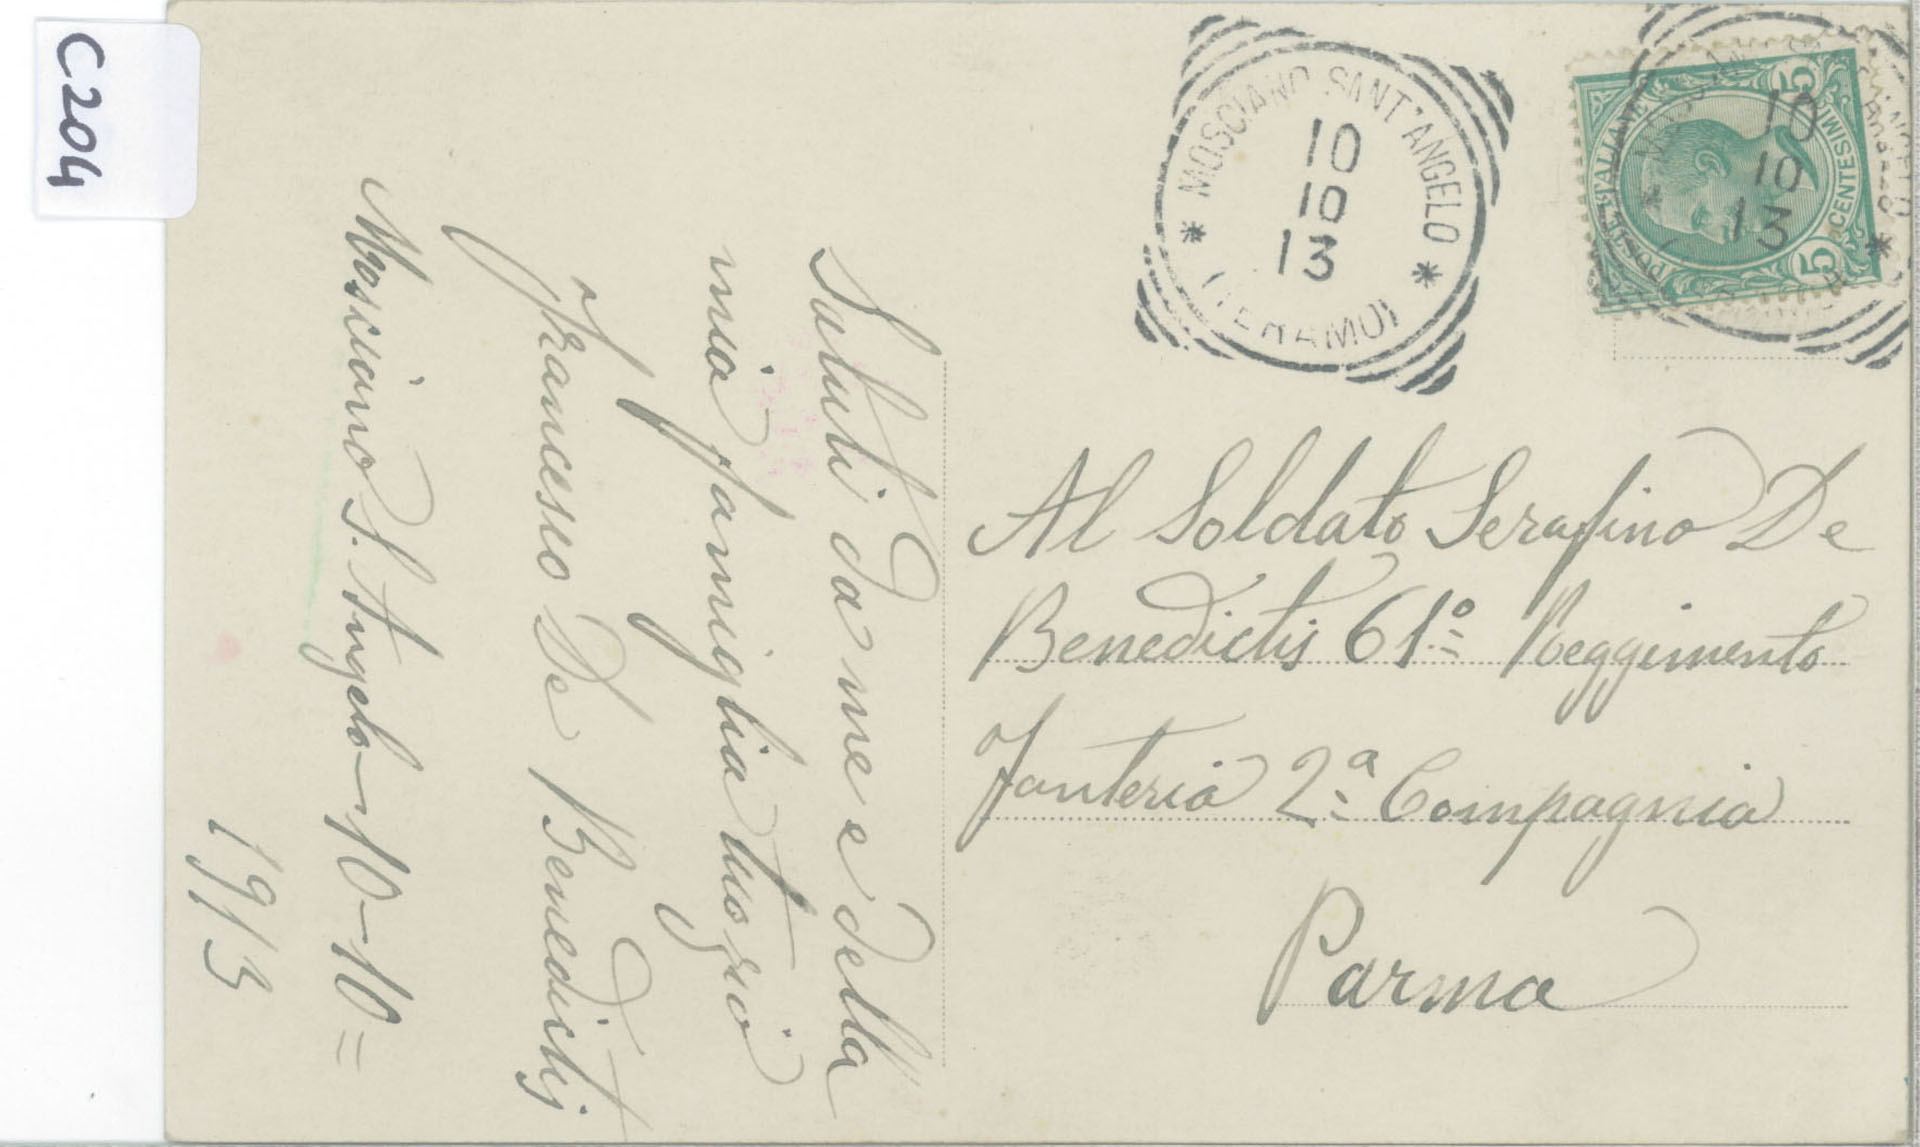 C204
MOSCIANO SANT'ANGELO
10
10
13
(TERAMO)
POSTE ITALIANE
5 CENTESIMI 5
10
10
13
Al Soldato Serafino De
Benedictis 61° Reggimento
Fanteria 2ª Compagnia
Parma
Saluti da me e della
mia famiglia tuo zio
Francesco De Benedictis
Mosciano S. Angelo - 10 - 10 =
1913